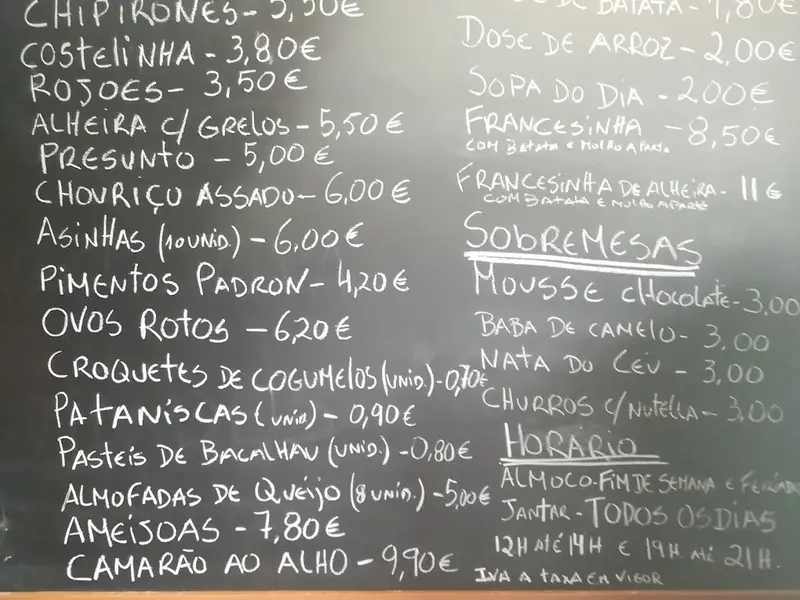 CHIPIRONES - 5,50€
COSTELINHA - 3,80€
ROJOES - 3,50€
ALHEIRA C/ GRELOS - 5,50€
PRESUNTO - 5,00€
CHOURIÇO ASSADO - 6,00€
ASINHAS (10 UNID.) - 6,00€
PIMENTOS PADRON - 4,20€
OVOS ROTOS - 6,20€
CROQUETES DE COGUMELOS (UNID.) - 0,70€
PATANISCAS (UNID) - 0,90€
PASTEIS DE BACALHAU (UNID.) - 0,80€
ALMOFADAS DE QUEIJO (8 UNID.) - 5,00€
AMEIJOAS - 7,80€
CAMARÃO AO ALHO - 9,90€
DE BATATA - 1,80€
DOSE DE ARROZ - 2,00€
SOPA DO DIA - 2,00€
FRANCESINHA - 8,50€
COM BATATA E MOLHO APARTE
FRANCESINHA DE ALHEIRA - 11€
COM BATATA E MOLHO APARTE
SOBREMESAS
MOUSSE CHOCOLATE - 3,00
BABA DE CAMELO - 3,00
NATA DO CÉU - 3,00
CHURROS C/ NUTELLA - 3,00
HORÁRIO
ALMOCO - FIM DE SEMANA E FERIADO
JANTAR - TODOS OS DIAS
12H ATÉ 14H E 19H ATÉ 21H.
IVA A TAXA EM VIGOR